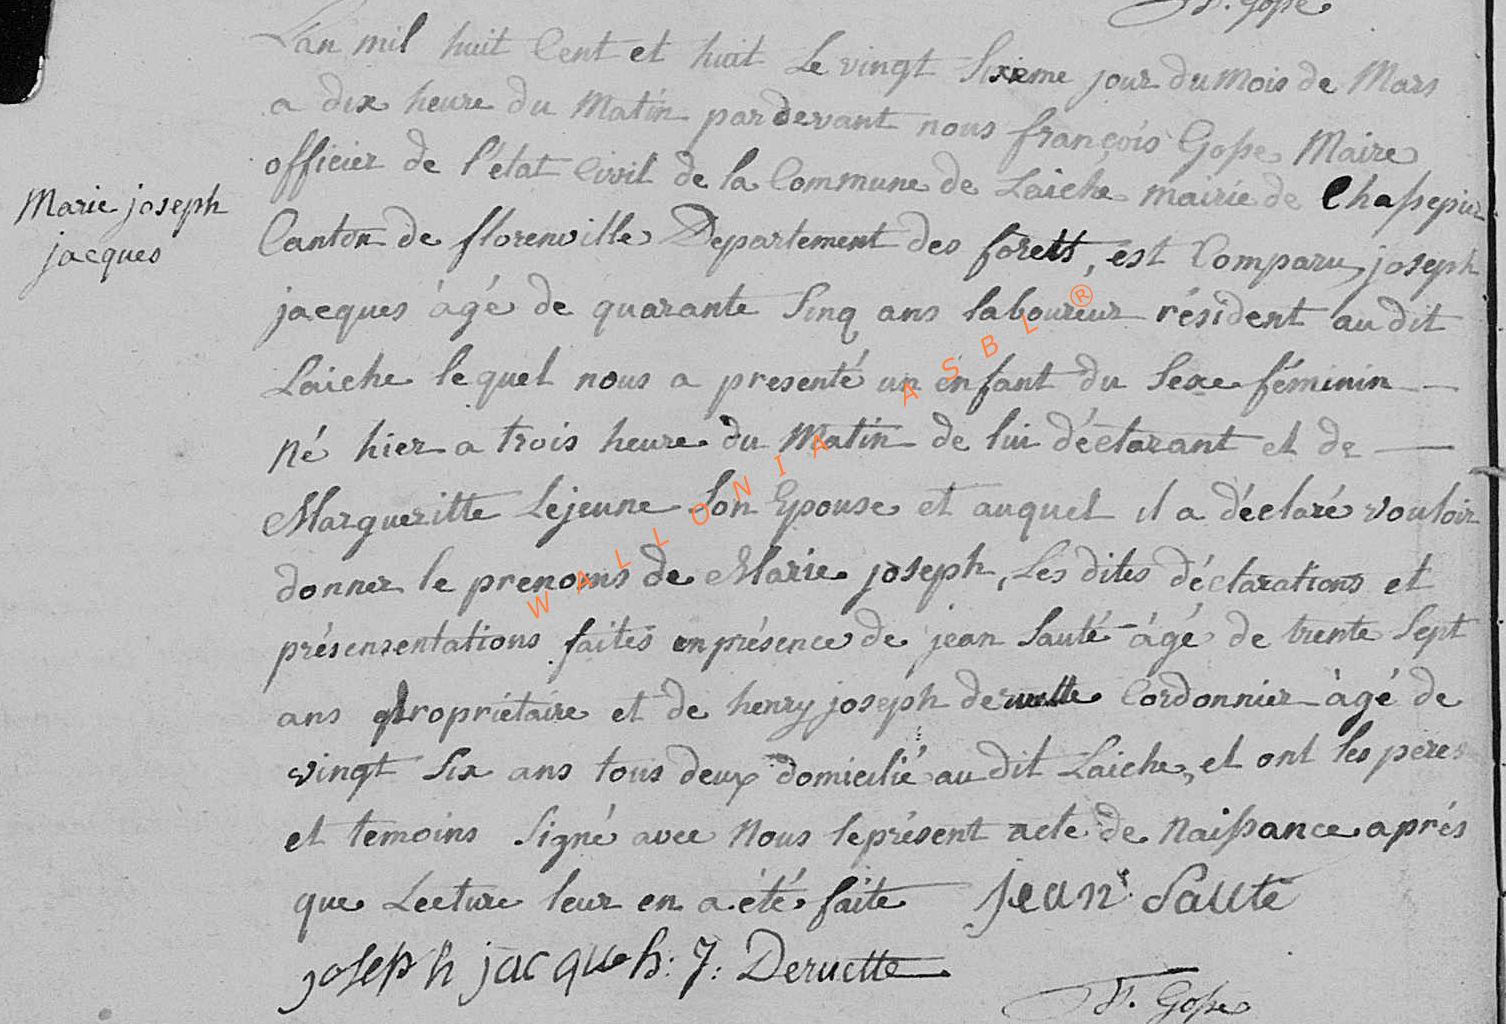 F. Gosse
L'an mil huit Cent et huit Le vingt Sixieme jour du Mois de Mars
a dix heure du Matin par devant nous françois Gosse Maire
officier de l'état Civil de la Commune de Laiche mairie de Chassepier
Marie joseph
jacques
Canton de florenville Departement des forets, est Comparu joseph
jacques âgé de quarante Sinq ans laboureur résident au dit
Laiche lequel nous a presenté un enfant du Sexe féminin —
Né hier a trois heure du Matin de lui déclarant et de —
Margueritte Lejeune Son Epouse et auquel il a déclaré vouloir
donner le prenoms de Marie joseph, Les dites déclarations et
présensentations faites en présence de jean Sauté âgé de trente Sept
ans propriétaire et de henry joseph deruette Cordonnier âgé de
vingt Six ans tous deux domicilié au dit Laiche, et ont les peres
et temoins Signé avec Nous le présent acte de Naissance aprés
que Lecture leur en a été faite jean Saute
joseph jacque h: J: Deruette
F. Gosse
WALLONIA ASBL ®